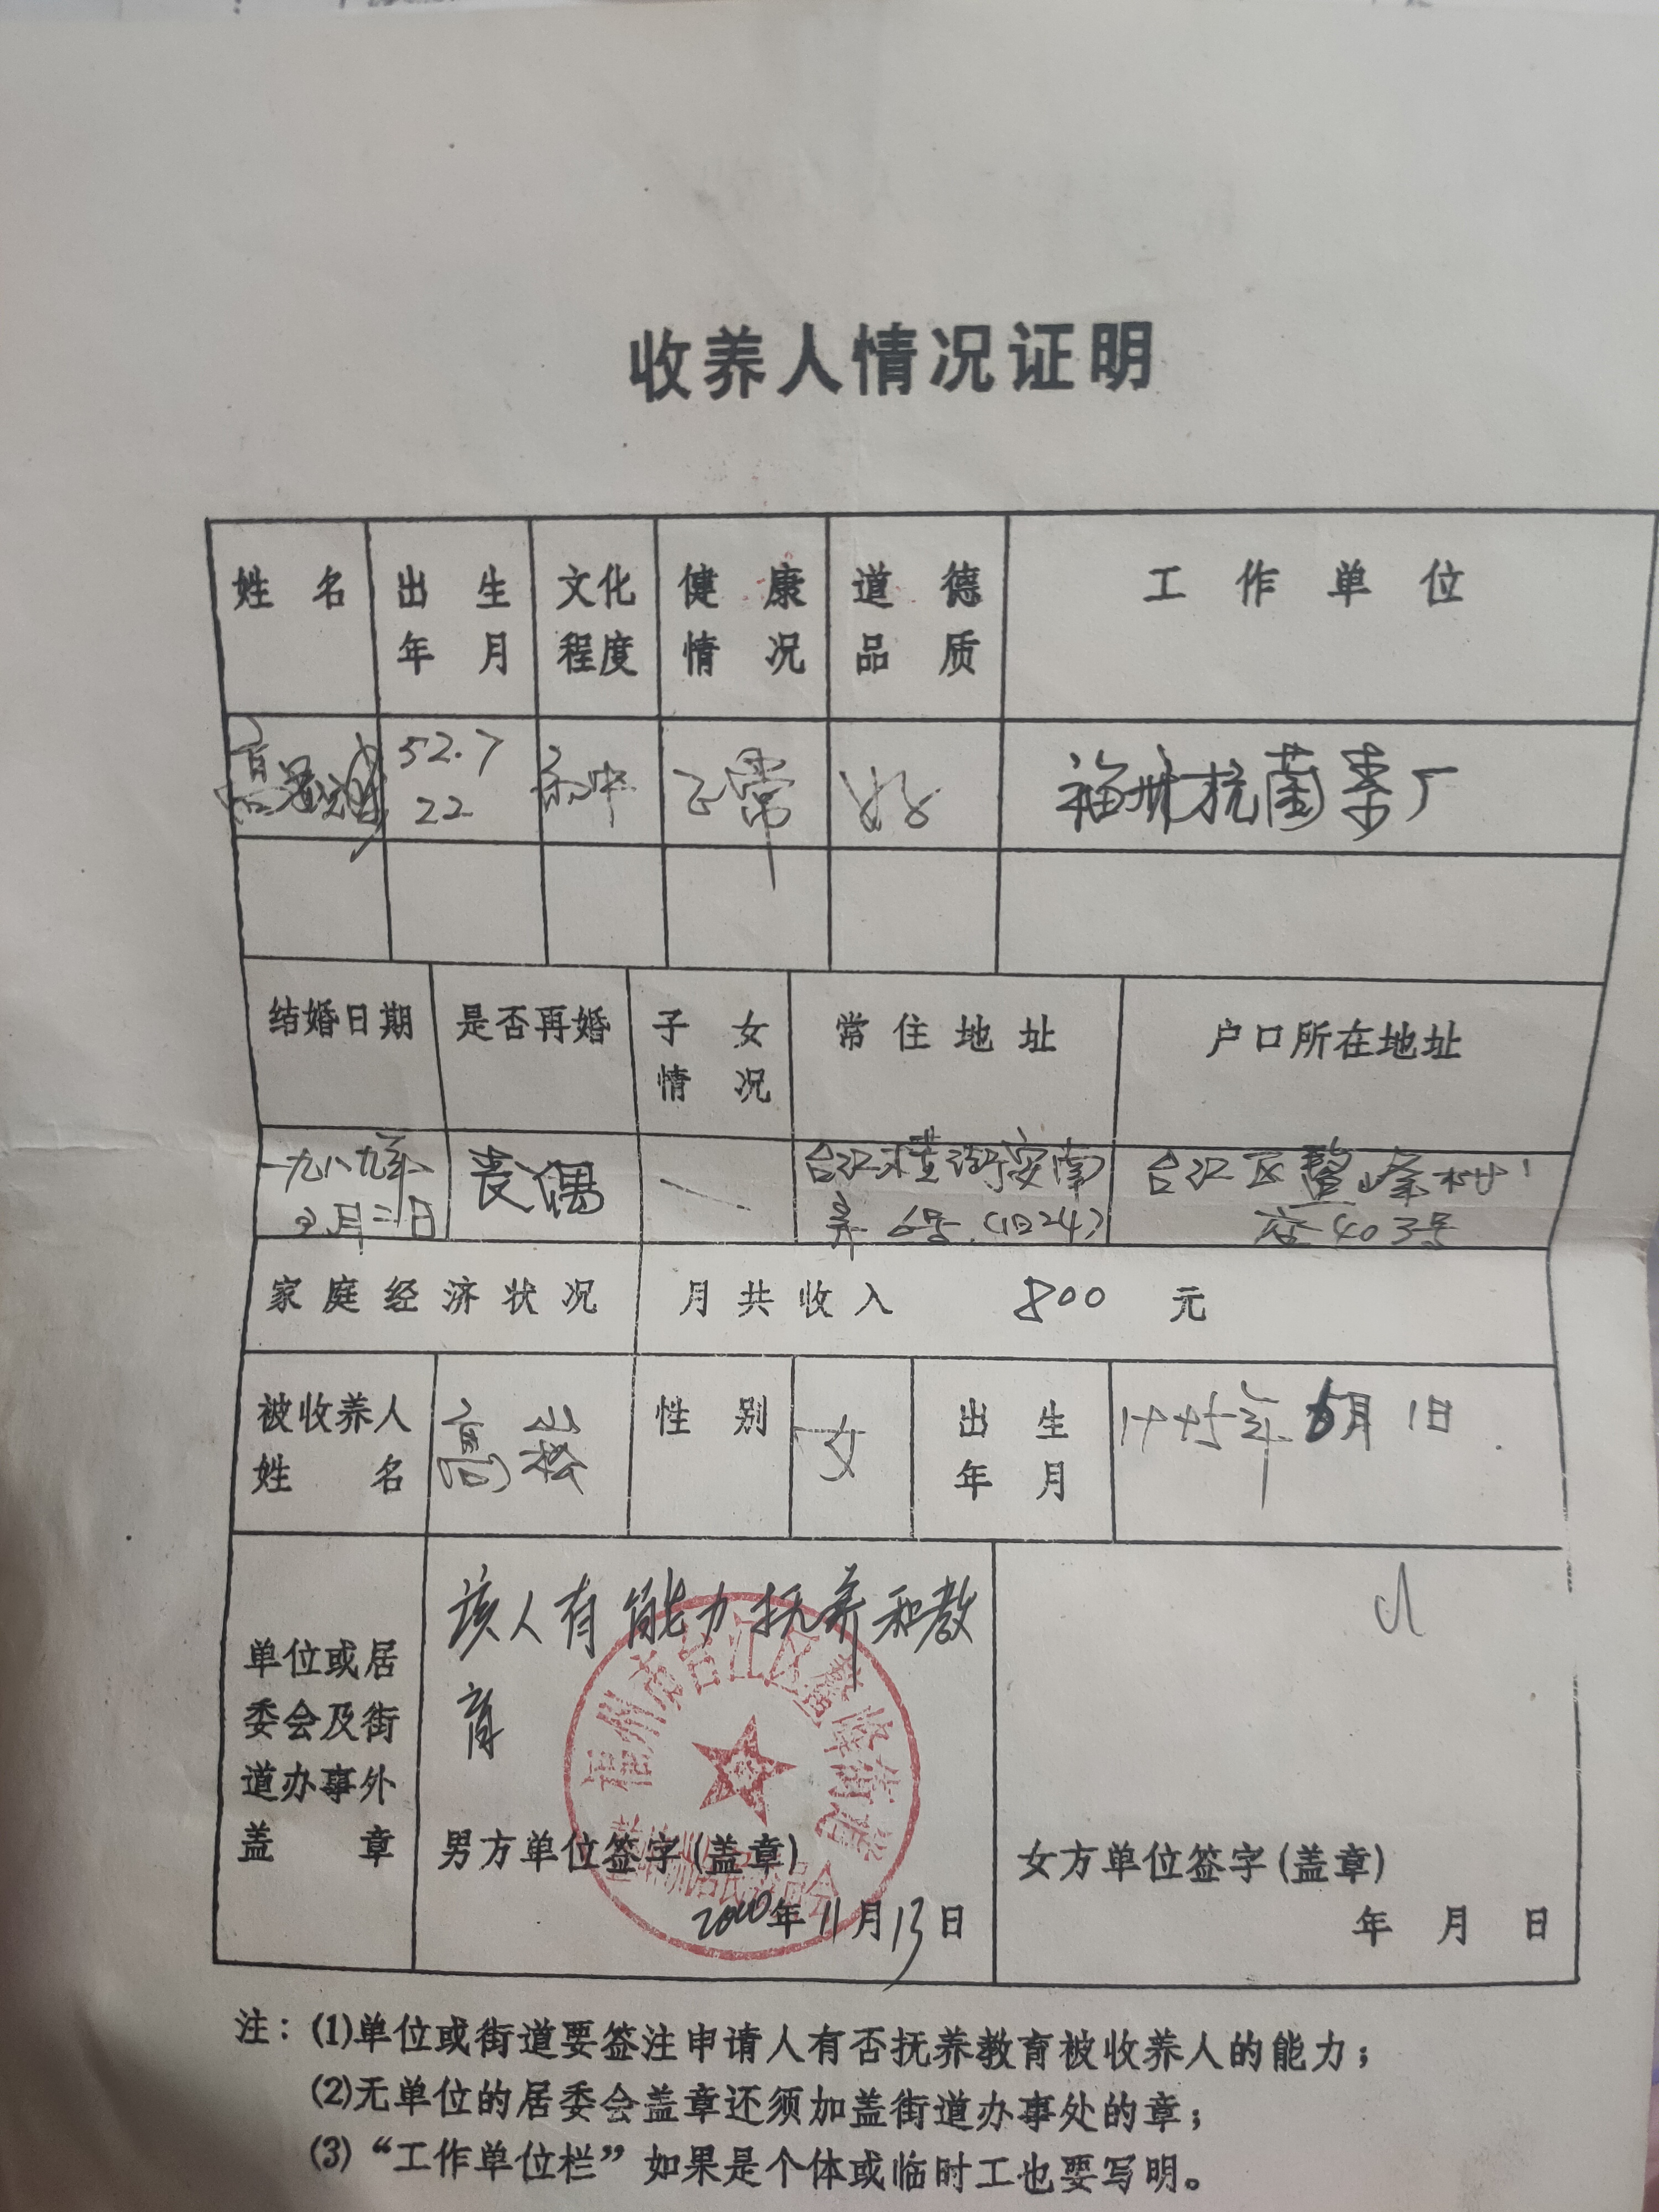 收养人情况证明
姓名 出生年月 文化程度 健康情况 道德品质 工作单位
高 52.7 22 初中 正常 好 福州抗菌素厂
结婚日期 是否再婚 子女情况 常住地址 户口所在地址
一九八九年 月二日 丧偶 台江横街安南弄6号(旧24) 台江区鳌峰 403号
家庭经济状况 月共收入 800 元
被收养人姓名 高 性别 女 出生年月 年6月1日
单位或居委会及街道办事外盖章
该人有能力抚养和教
育
福州市台江区鳌峰街道
居民委员会
男方单位签字(盖章)
2000年11月13日
女方单位签字(盖章)
年 月 日
注：(1)单位或街道要签注申请人有否抚养教育被收养人的能力；
(2)无单位的居委会盖章还须加盖街道办事处的章；
(3)“工作单位栏”如果是个体或临时工也要写明。